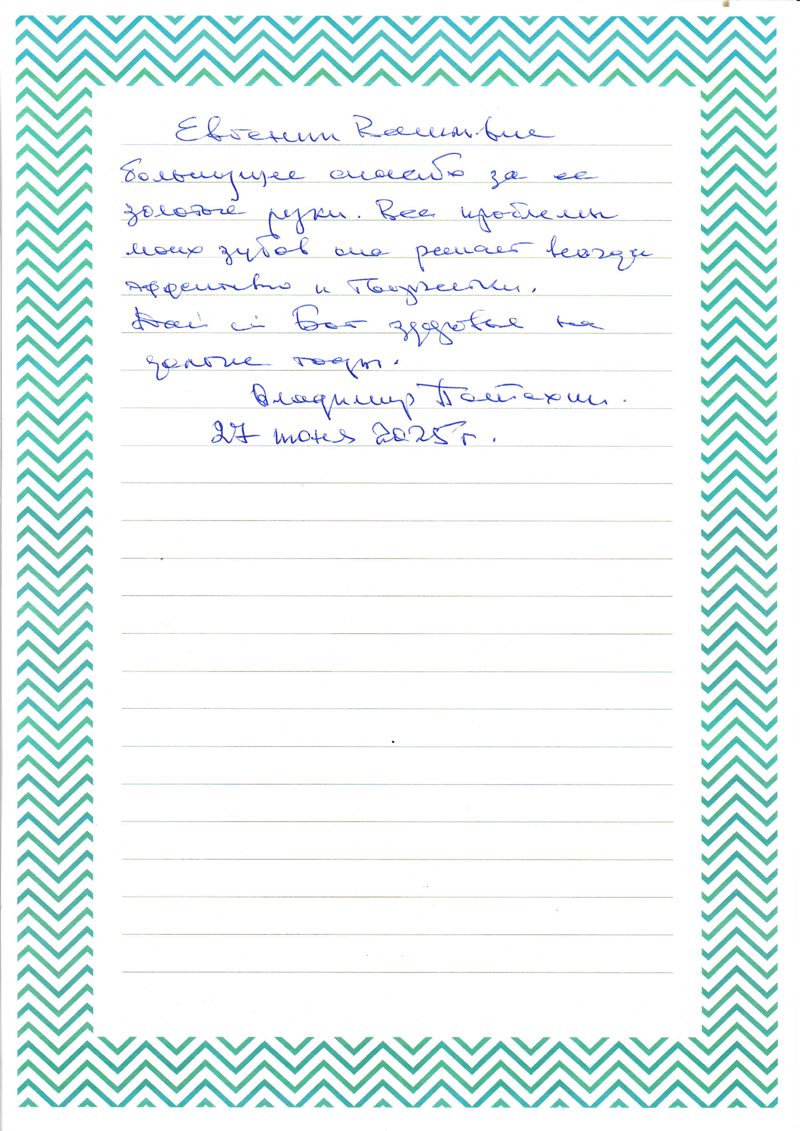 Евгении
большущее спасибо за ее
золотые руки. Все проблемы
моих зубов она решает всегда
эффективно и
Дай ей Бог здоровья на
долгие годы.
Владимир
27 июня 2025 г.